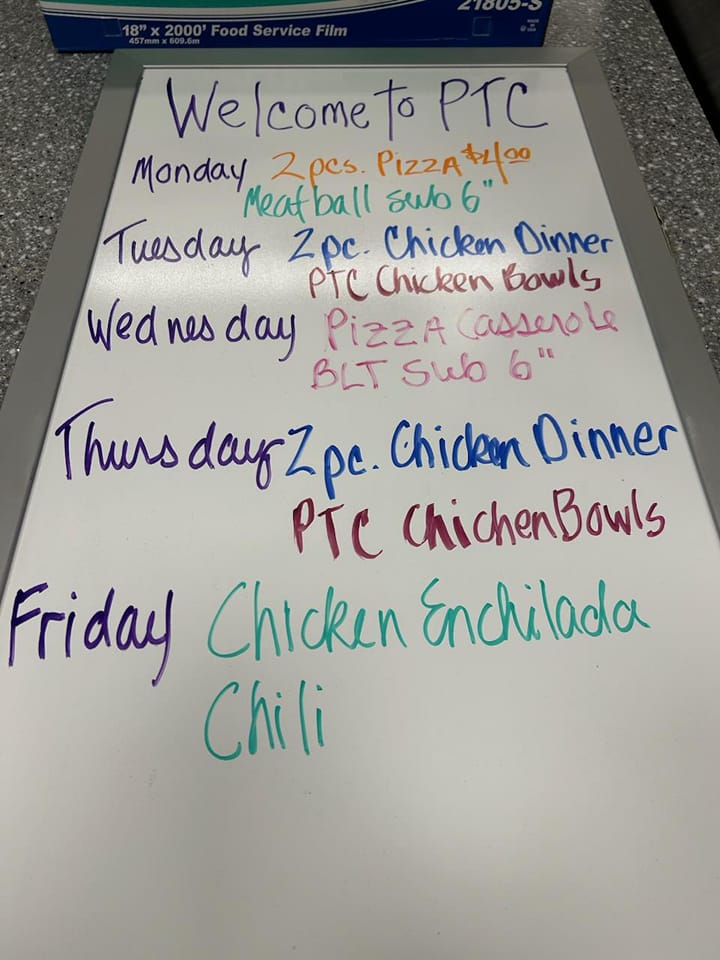 21805-S
18" x 2000' Food Service Film
457mm x 609.6m
Welcome to PTC
Monday 2pcs. PIZZA $4.00
Meatball sub 6"
Tuesday 2pc. Chicken Dinner
PTC Chicken Bowls
Wednesday PIZZA Casserole
BLT Sub 6"
Thursday 2pc. Chicken Dinner
PTC Chichen Bowls
Friday Chicken Enchilada
Chili